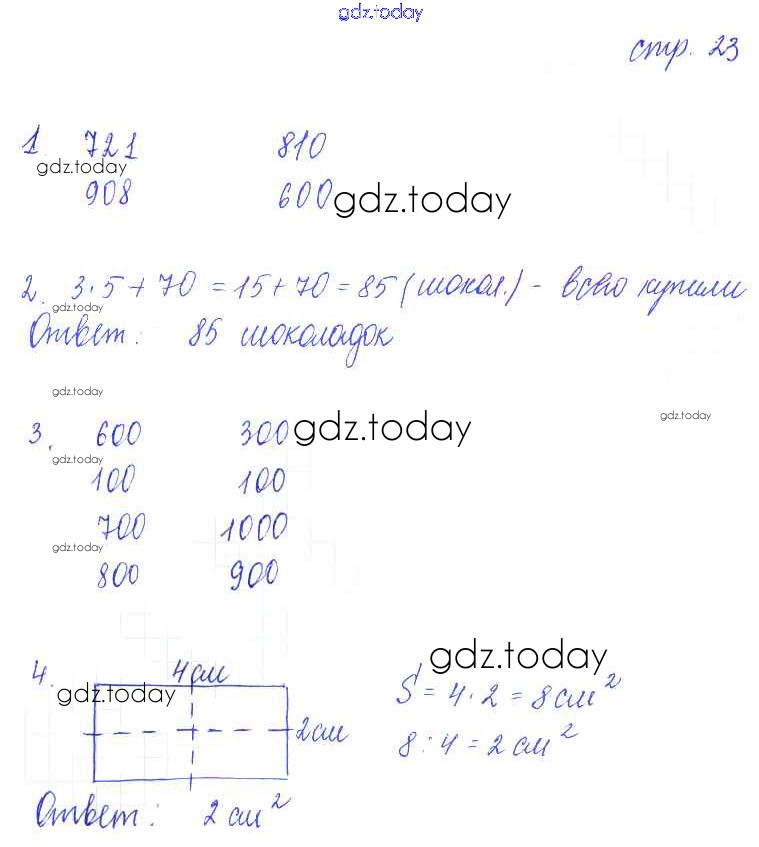 gdz.today
стр. 23
1. 721 810
gdz.today
908 600 gdz.today
2. 3·5+70=15+70=85 (шокол.) - всего купили
gdz.today
Ответ: 85 шоколадок
gdz.today
gdz.today
3. 600 300 gdz.today
gdz.today
100 100
700 1000
gdz.today
800 900
gdz.today
4. 4 см
gdz.today
S = 4·2 = 8 см²
2 см
8:4 = 2 см²
Ответ: 2 см²